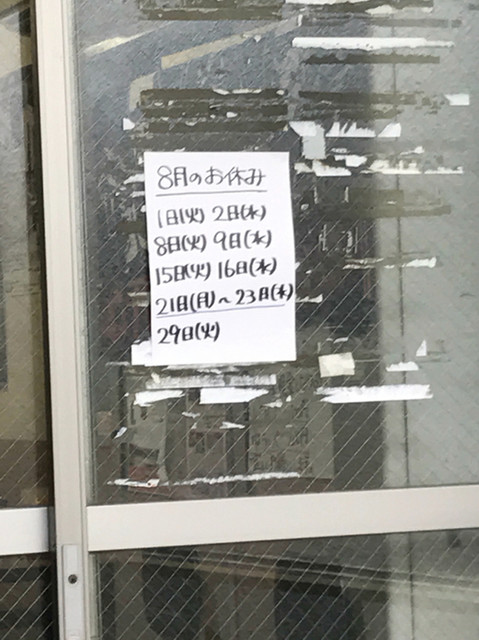 8月のお休み
1日(火) 2日(水)
8日(火) 9日(水)
15日(火) 16日(水)
21日(月)～23日(水)
29日(火)